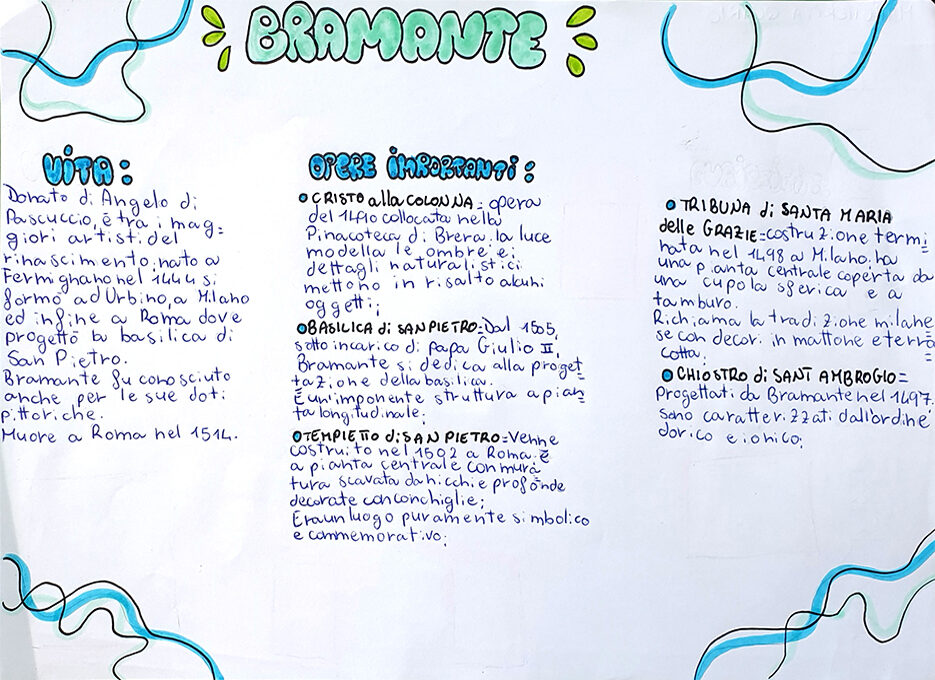 BRAMANTE
VITA:
Donato di Angelo di
Pascuccio, è tra i mag=
giori artisti del
rinascimento, nato a
Fermignano nel 1444 si
formò ad Urbino, a Milano
ed infine a Roma dove
progettò la basilica di
San Pietro.
Bramante fu conosciuto
anche per le sue doti
pittoriche.
Muore a Roma nel 1514.
OPERE IMPORTANTI:
CRISTO alla COLONNA= opera
del 1490 collocata nella
Pinacoteca di Brera. la luce
modella le ombre e i
dettagli naturalistici
mettono in risalto alcuni
oggetti;
BASILICA di SAN PIETRO= Dal 1505,
sotto incarico di papa Giulio II,
Bramante si dedica alla proget=
tazione della basilica.
È un'imponente struttura a pian=
ta longitudinale;
TEMPIETTO di SAN PIETRO= Venne
costruito nel 1502 a Roma. È
a pianta centrale con mura=
tura scavata da nicchie profonde
decorate con conchiglie;
Era un luogo puramente simbolico
e commemorativo;
TRIBUNA di SANTA MARIA
delle GRAZIE= costruzione termi=
nata nel 1498 a Milano. ha
una pianta centrale coperta da
una cupola sferica e a
tamburo.
Richiama la tradizione milane=
se con decori in mattone e terra=
cotta.
CHIOSTRO di SANT AMBROGIO=
Progettati da Bramante nel 1497.
sono caratterizzati dall'ordine
dorico e ionico;